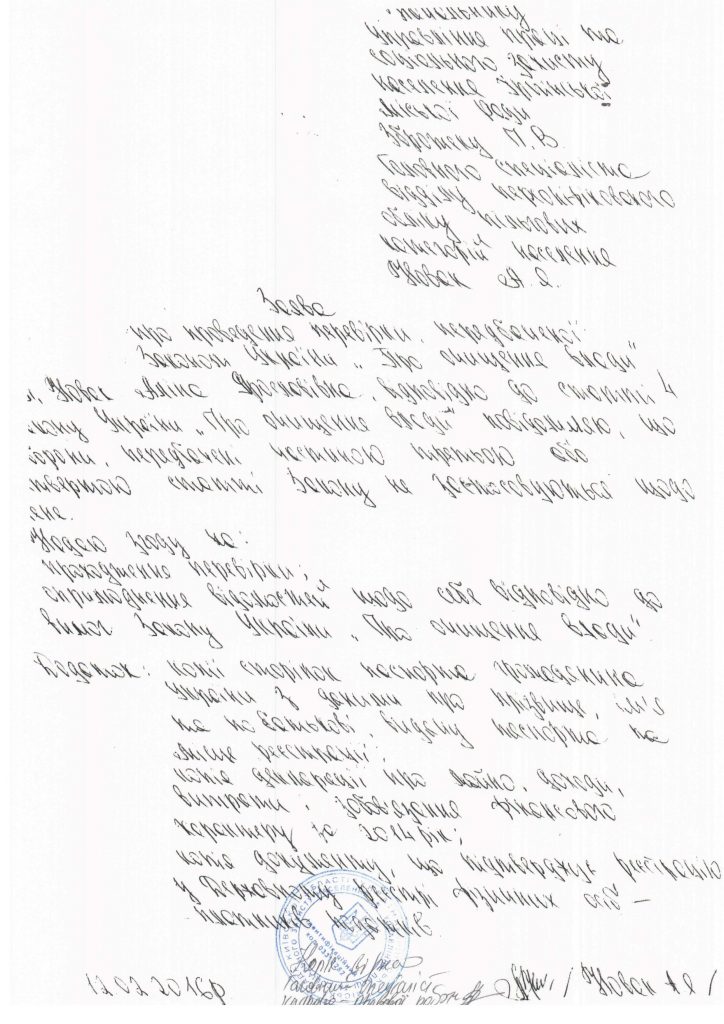 Начальнику
управління праці та
соціального захисту
населення Ірпінської
міської ради
П. В.
головного спеціаліста
відділу персоніфікованого
обліку пільгових
категорій населення
Новак А. Я.
Заява
про проведення перевірки, передбаченої
Законом України „Про очищення влади"
я, Новак Аліна Ярославівна, відповідно до статті 4
кону України „Про очищення влади" повідомляю, що
борони, передбачені частиною третьою або
твертою статті Закону не застосовуються щодо
ене.
Надаю згоду на:
проходження перевірки;
оприлюднення відомостей щодо себе відповідно до
вимог Закону України „Про очищення влади".
Додаток: копії сторінок паспорта громадянина
України з даними про прізвище, ім'я
та по батькові, видачу паспорта та
місце реєстрації;
копія декларації про майно, доходи,
витрати і зобов'язання фінансового
характеру за 2014 рік;
копія документу, що підтверджує реєстрацію
у Державному реєстрі фізичних осіб –
платників податків
Копія вірна
12.02.2016р / Новак А Я /
Головний спеціаліст
кадрової роботи